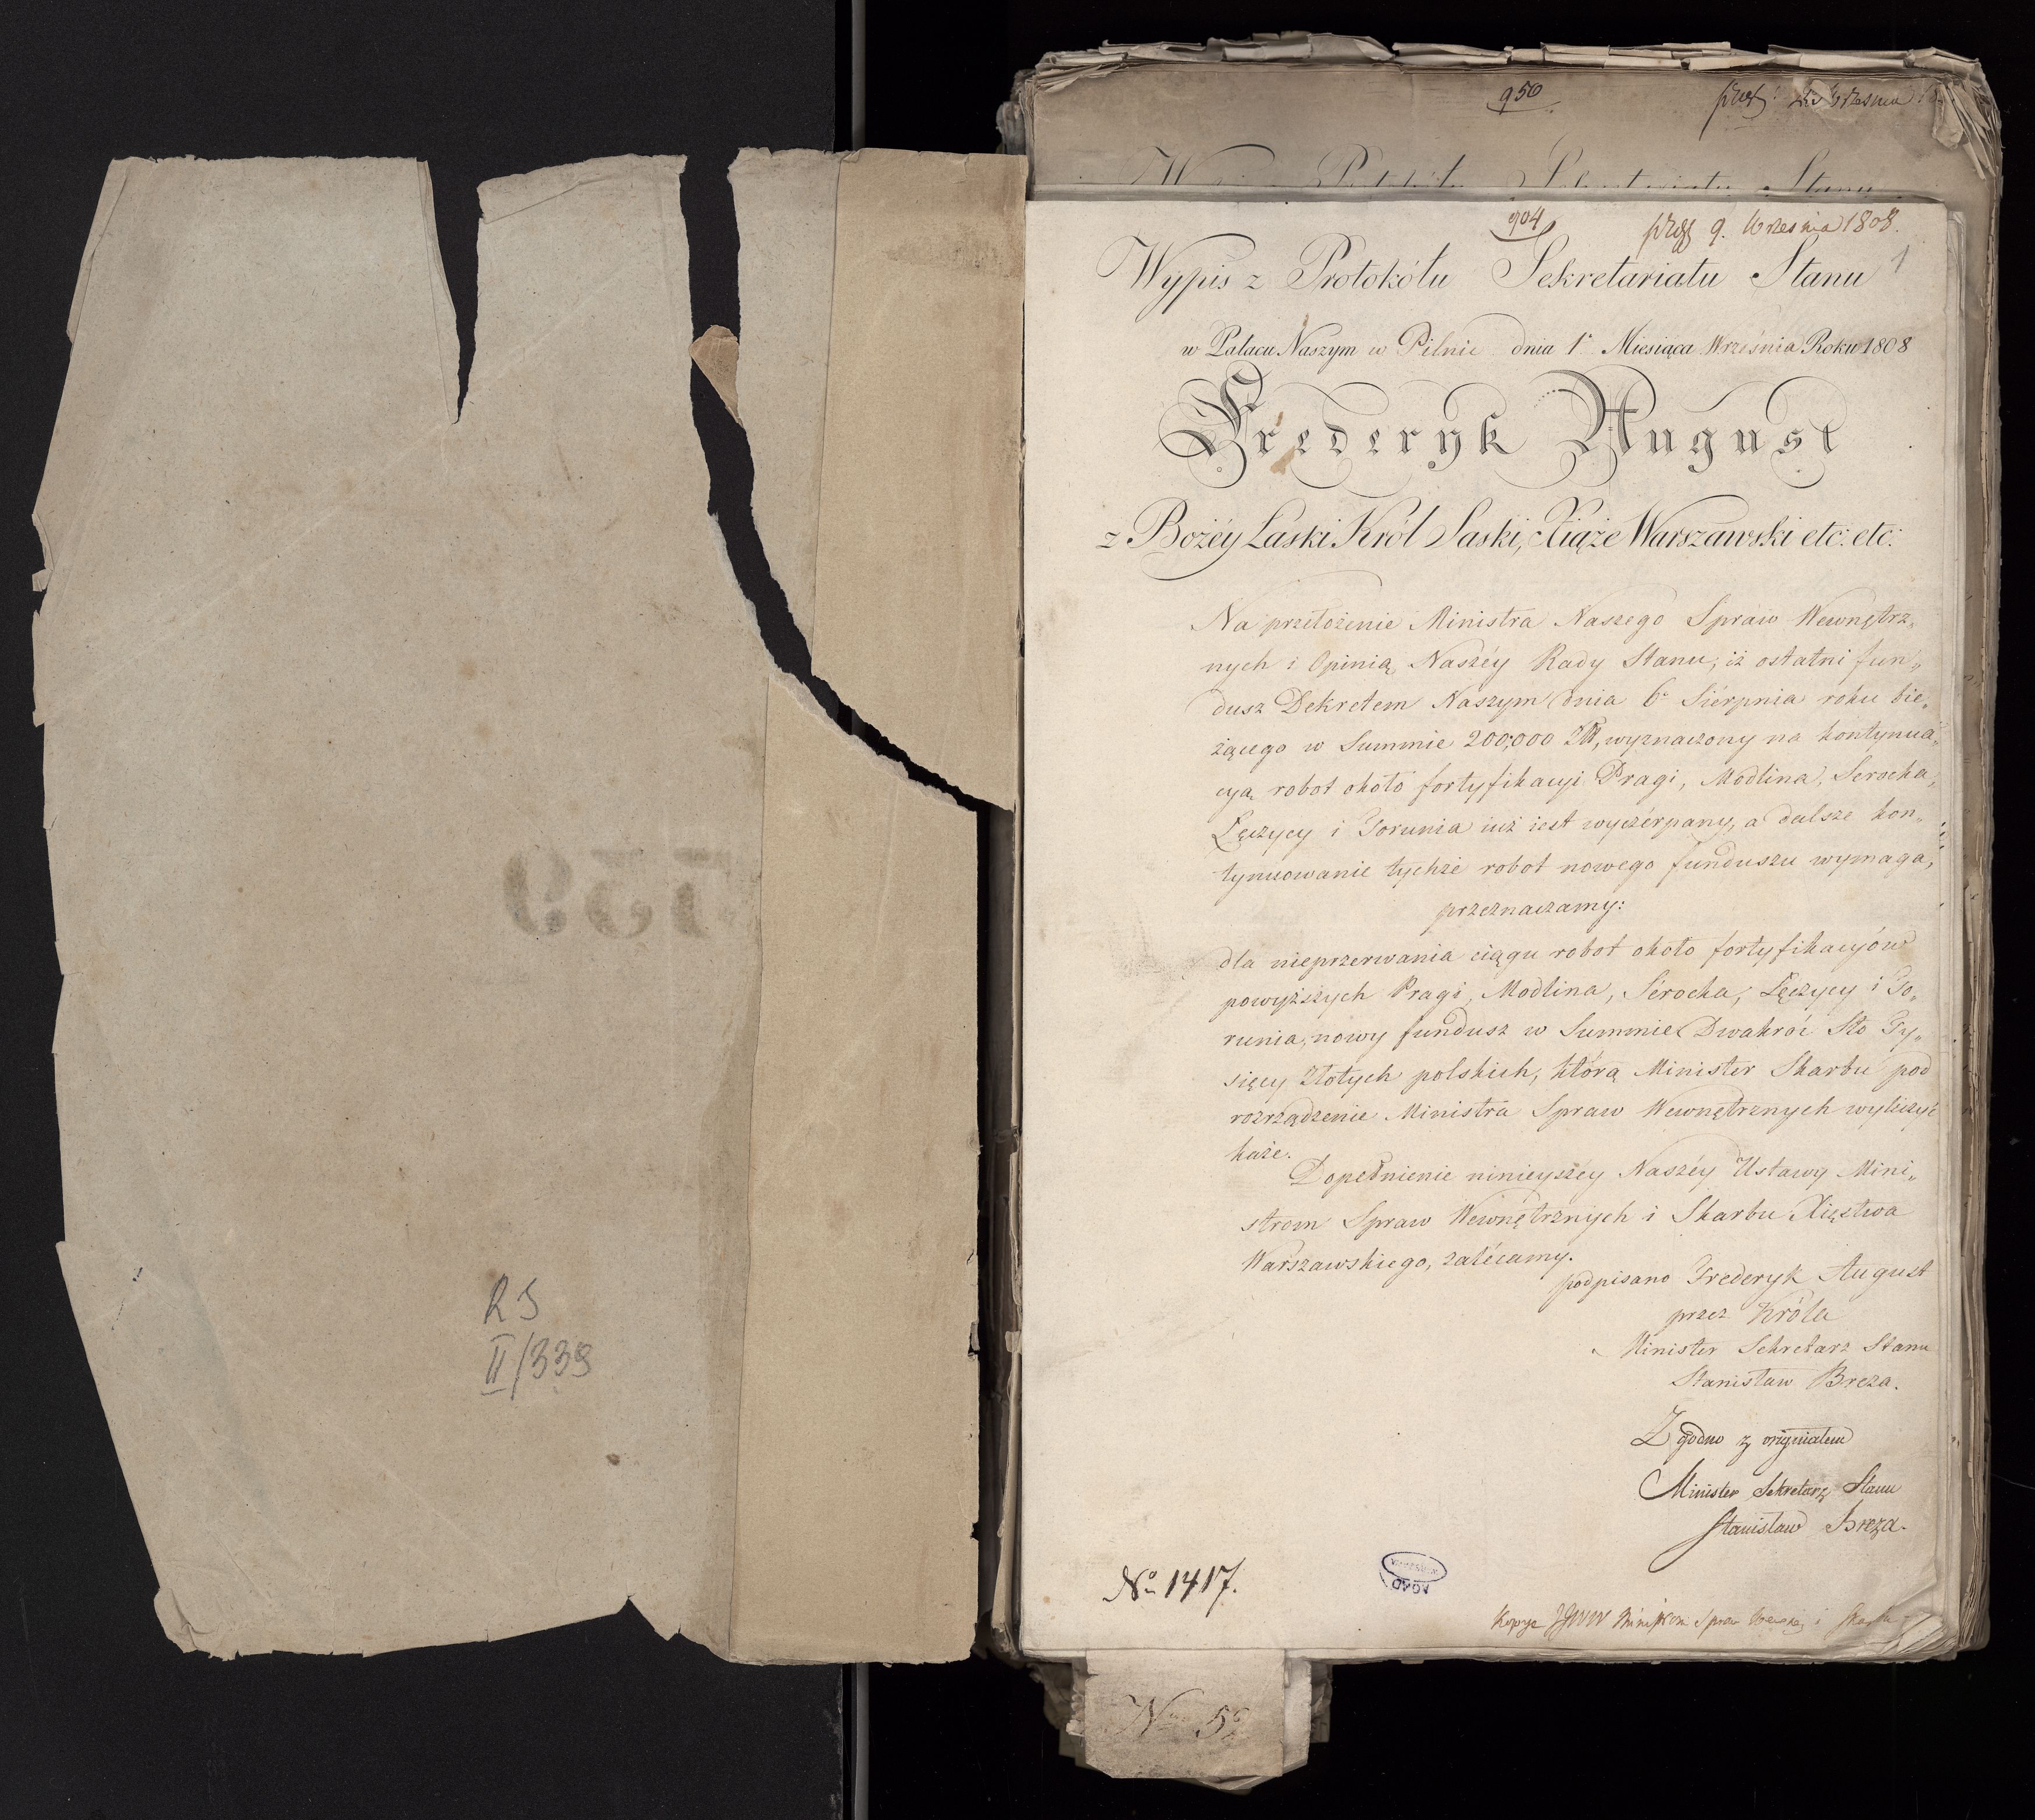 339
R S
II/339
956
904
9. Września 1808.
1
Wypis z Protokółu Sekretariatu Stanu
w Pałacu Naszym w Pilnie dnia 1° Miesiąca Września Roku 1808
Frederyk August
z Bożéy Łaski Król Saski, Xiąże Warszawski etc: etc:
Na przełożenie Ministra Naszego Spraw Wewnętrz„
nych i Opinią Naszéy Rady Stanu, iż ostatni fun„
dusz Dekretem Naszym dnia 6° Sierpnia roku bie„
żącego w Summie 200,000 Złł, wyznaczony na kontynua„
cyą robot około fortyfikacyi Pragi, Modlina, Serocka,
Łęczycy i Torunia iuż iest wyczérpany, a dalsze kon„
tynuowanie tychże robot nowego funduszu wymaga,
przeznaczamy:
dla nieprzerwania ciągu robot około fortyfikacyów
powyższych Pragi, Modlina, Sérocka, Łęczycy i To„
runia, nowy fundusz w Summie Dwakroć Sto Ty„
sięcy Złotych polskich, którą Minister Skarbu pod
rozrządzenie Ministra Spraw Wewnętrznych wyliczyć
każe.
Dopełnienie ninieyszéy Naszéy Ustawy Mini„
strom Spraw Wewnętrznych i Skarbu Xięstwa
Warszawskiego, zalécamy.
podpisano Frederyk August
przez Króla
Minister Sekretarz Stanu
Stanisław Breza.
Zgodno z oryginałem
Minister Sekretarz Stanu
Stanisław Breza.
No 1417.
AGAD
Kopye JJWW Ministrom Spraw i Skarbu
No 5